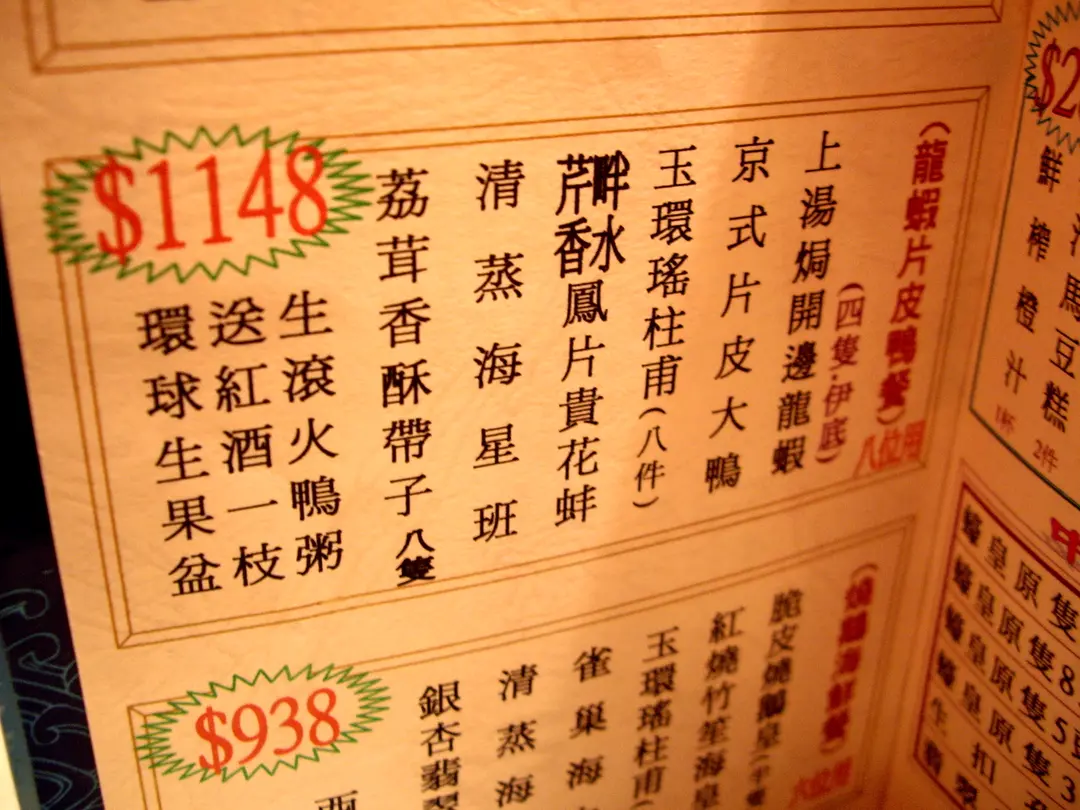 (龍蝦片皮鴨餐)八位用
上湯焗開邊龍蝦
(四隻.伊底)
京式片皮大鴨
玉環瑤柱甫(八件)
畔水
芹香鳳片貴花蚌
清蒸海星班
荔茸香酥帶子八隻
生滾火鴨粥
送紅酒一枝
環球生果盆
$1148
脆皮燒鵝皇
紅燒竹笙海皇
玉環瑤柱甫
雀巢海
清蒸海
銀杏翡翠
$938
$2
馬豆糕
2件
鮮榨橙汁
1杯
皇原隻
皇原隻8
皇原隻5
皇原隻3
生扣